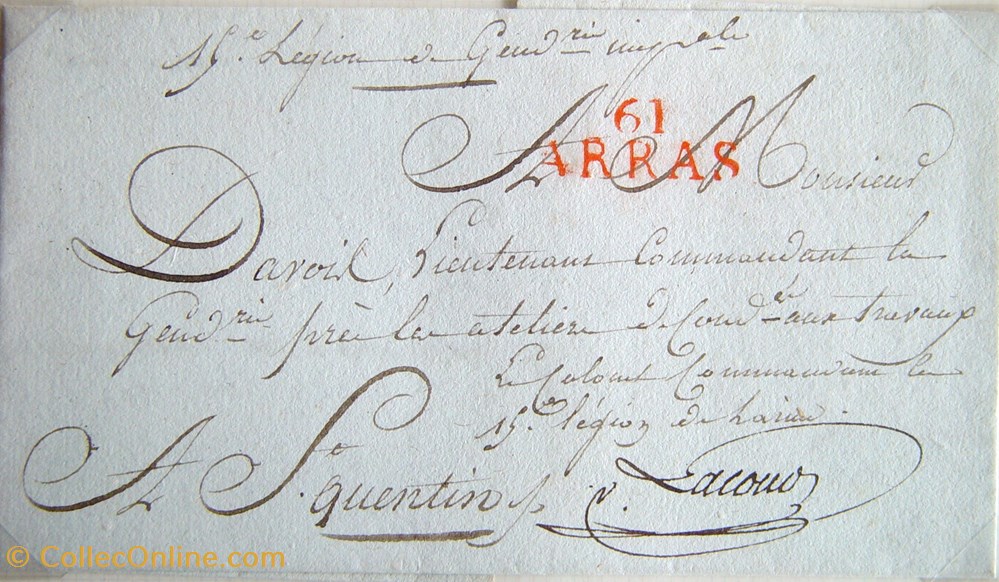 15.e Légion de Gend.rie imp.ale
61
ARRAS
A Monsieur
Davoit, Lieutenant Commandant la
Gend.rie près les ateliers de Cond.és aux travaux
Le Colonel Commandant la
15.e légion de
A S.t quentin
Lacour
© CollecOnline.com